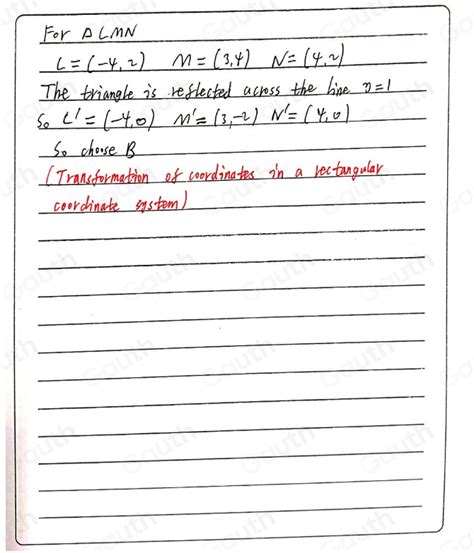 For △LMN
L = (-4,2) M = (3,4) N = (4,2)
The triangle is reflected across the line y=1
So L' = (-4,0) M' = (3,-2) N' = (4,0)
So choose B
(Transformation of coordinates in a rectangular
coordinate system)